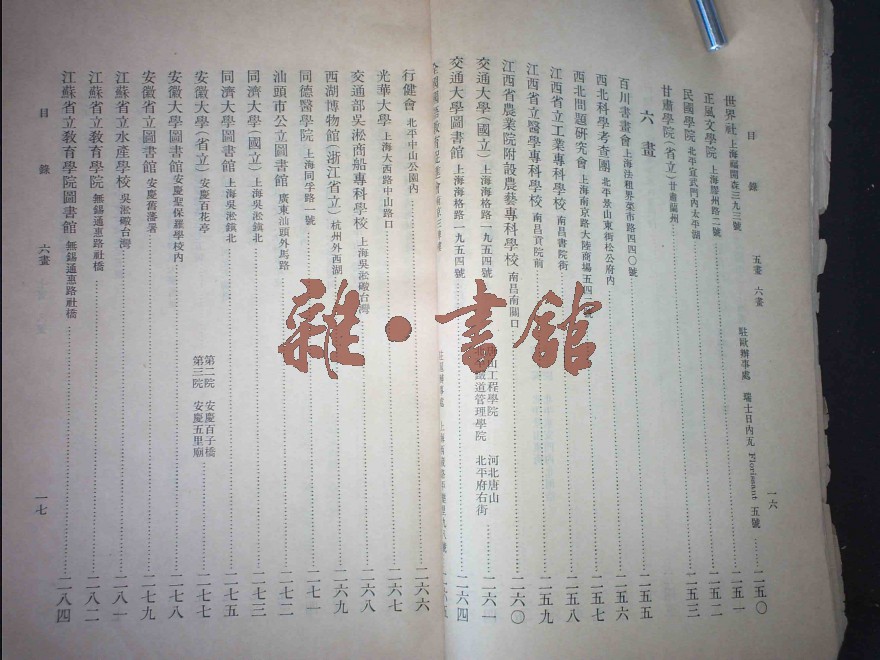 目錄 五畫 六畫 一六
世界社 上海福開森三九三號 駐歐辦事處 瑞士日內瓦 Florissant 五號 二五〇
正風文學院 上海膠州路二號 二五一
民國學院 北平宣武門內太平湖 二五三
甘肅學院(省立) 甘肅蘭州 二五五
六畫
百川書畫會 上海法租界菜市路四四〇號 二五六
西北科學考查團 北平景山東街松公府內 二五七
西北問題研究會 上海南京路大陸商場五四 號 二五八
江西省立工業專科學校 南昌書院街 二五九
江西省立醫學專科學校 南昌貢院前
江西省農業院附設農藝專科學校 南昌南關口 二六〇
交通大學(國立) 上海海格路一九五四號 山工程學院 河北唐山 鐵道管理學院 北平府右街 二六一
交通大學圖書館 上海海格路一九五四號 二六四
行健會 北平中山公園內 二六六
光華大學 上海大西路中山路口 二六七
交通部吳淞商船專科學校 上海吳淞礮台灣 二六八
西湖博物館(浙江省立) 杭州外西湖 二六九
同德醫學院 上海同孚路一號 二七一
汕頭市公立圖書館 廣東汕頭外馬路 二七二
同濟大學(國立) 上海吳淞鎮北 二七三
同濟大學圖書館 上海吳淞鎮北 二七五
安徽大學(省立) 安慶百花亭 第二院 安慶百子橋 第三院 安慶五里廟 二七七
安徽大學圖書館 安慶聖保羅學校內 二七八
安徽省立圖書館 安慶舊藩署 二七九
江蘇省立水產學校 吳淞礮台灣 二八一
江蘇省立教育學院 無錫通惠路社橋 二八二
江蘇省立教育學院圖書館 無錫通惠路社橋 二八四
目錄 六畫 一七
雜·書館